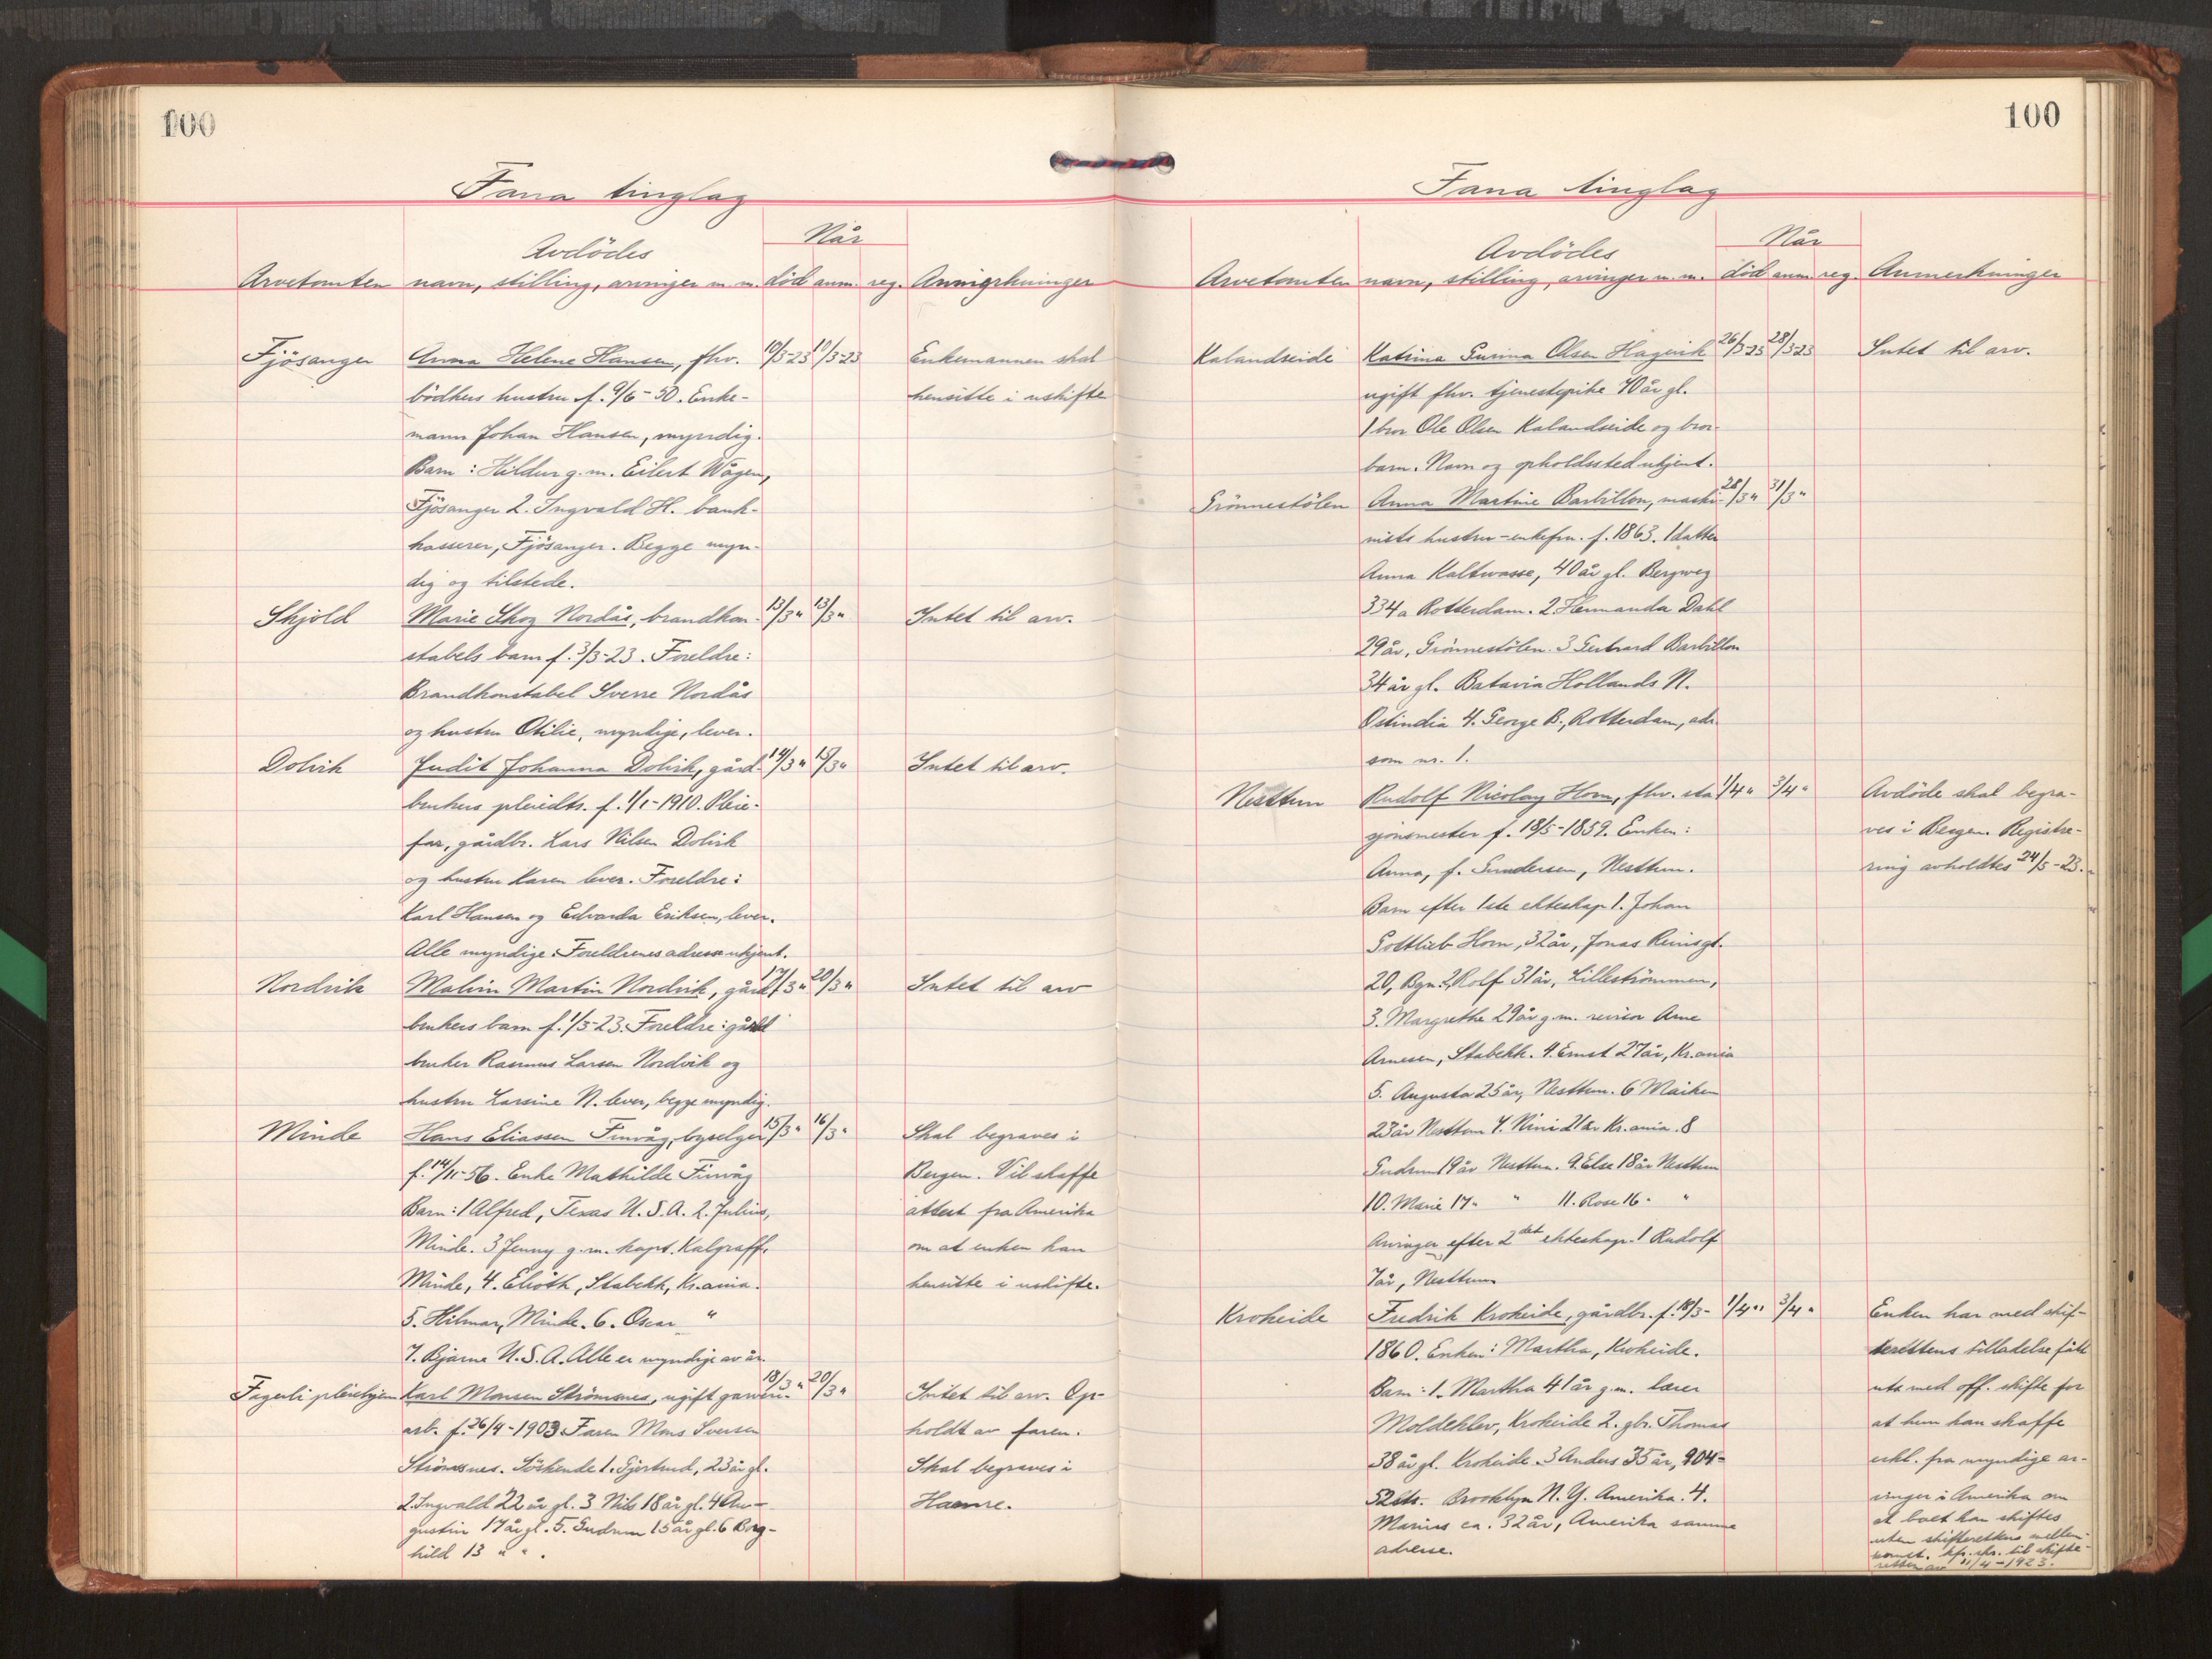 100
Fana tinglag
Avdödes
Når
Arvetomten navn, stilling, arvinger m. m. död anm. reg. Anmerkninger
Fjösanger Anna Helene Hansen, fhv. 10/3-23 10/3-23 Enkemannen skal
bödkers hustru f. 9/6-50. Enke- hensitte i uskifte
mann Johan Hansen, myndig.
Barn: Hildur g. m. Eilert Wågen,
Fjösanger 2. Ingvald H. bank-
kasserer, Fjösanger. Begge myn-
dig og tilstede.
Skjold Marie Skog Nordås, brandkon- 13/3 " 13/3 " Intet til arv.
stabels barn f. 3/3-23. Foreldre:
Brandkonstabel Sverre Nordås
og hustru Otilie, myndige, lever.
Dolvik Judit Johanna Dolvik, gård- 14/3 " 15/3 " Intet til arv.
brukers pleiedtr. f. 1/1-1910. Pleie-
far, gårdbr. Lars Nilsen Dolvik
og hustru Karen lever. Foreldre:
Karl Hansen og Edvarda Eriksen, lever.
Alle myndige. Foreldrenes adresse ukjent.
Nordvik Malvin Martin Nordvik, gård- 17/3 " 20/3 " Intet til arv
brukers barn f. 1/3-23. Foreldre: gård
bruker Rasmus Larsen Nordvik og
hustru Larsine N. lever, begge myndig.
Minde Hans Eliassen Finvåg, byselger 15/3 " 16/3 " Skal begraves i
f. 14/11-56. Enke Mathilde Finvåg Bergen. Vil skaffe
Barn: 1 Alfred, Texas U.S.A. 2. Julius, attest fra Amerika
Minde. 3 Jenny g. m. kapt. Kalgraff, om at enken kan
Minde, 4. Elioth, Stabekk, Kr.ania. hensitte i uskifte.
5. Hilmar, Minde. 6. Oscar "
7. Bjarne U.S.A. Alle er myndige av år.
Fagerli pleiehjem Karl Monsen Strömsnes, ugift garveri- 18/3 " 20/3 " Intet til arv. Op-
arb. f. 26/4-1903. Faren Mons Iversen holdt av faren.
Strömsnes. Söskende 1. Gjertrud, 23 år gl. Skal begraves i
2. Ingvald 22 år gl. 3 Nils 18 år gl. 4 Au- Hamre.
gustin 17 år gl. 5. Gudrun 15 år gl. 6 Borg-
hild 13 " " .
100
Fana tinglag
Avdödes
Når
Arvetomten navn, stilling, arvinger m. m. död anm. reg. Anmerkninger
Kalandseide Katrina Gurina Olsen Hagevik 26/3-23 28/3-23 Intet til arv.
ugift fhv. tjenestepike 70 år gl.
1 bror Ole Olsen Kalandseide og bror-
barn. Navn og opholdssted ukjent.
Grönnestölen Anna Martine Barbillon, maski- 28/3 " 31/3 "
nists hustru - enkefru. f. 1863. 1 datter
Anna Kaltwasse, 40 år gl. Bergweg
334a Rotterdam. 2. Hermanda Dahl
29 år, Grönnestölen. 3 Gerhard Barbillon
34 år gl. Batavia Hollands N.
Ostindia 4. George B., Rotterdam, adr.
som nr. 1.
Nesttun Rudolf Nicolay Horn, fhv. sta 1/4 " 3/4 " Avdöde skal begra-
sjonsmester f. 18/5-1859. Enken: ves i Bergen. Registre-
Anna, f. Gundersen, Nesttun. ring avholdtes 24/5-23.
Barn efter 1ste ekteskap 1. Johan
Gottlieb Horn, 32 år, Jonas Reinsgt.
20, Bgn. 2, Rolf 31 år, Lilleströmmen,
3. Margrethe 29 år g. m. revisor Arne
Arnesen, Stabekk. 4. Ernst 27 år, Kr.ania
5. Augusta 25 år, Nesttun. 6 Maiken
23 år Nesttun 7. Nini 21 år Kr.ania. 8
Gudrun 19 år Nesttun. 9. Else 18 år Nesttun
10. Marie 17 " " 11. Rose 16 " "
Arvinger efter 2det ekteskap. 1 Rudolf
7 år, Nesttun
Krokeide Fredrik Krokeide, gårdbr. f. 18/3- 1/4 " 3/4 " Enken har med skif-
1860. Enken: Martha, Krokeide. terettens tilladelse fått
Barn: 1. Martha 41 år g. m. lærer uts. med off. skifte for
Moldeklev, Krokeide 2. gbr. Thomas at hun kan skaffe
38 år gl. Krokeide. 3 Anders 35 år, 904- erkl. fra myndige ar-
52 str. Brooklyn N.Y. Amerika. 4. vinger i Amerika om
Marius ca. 32 år, Amerika samme at boet kan skiftes
adresse. uten skifterettens mellem-
komst. kfr. skr. til skifte-
retten av 11/4-1923.